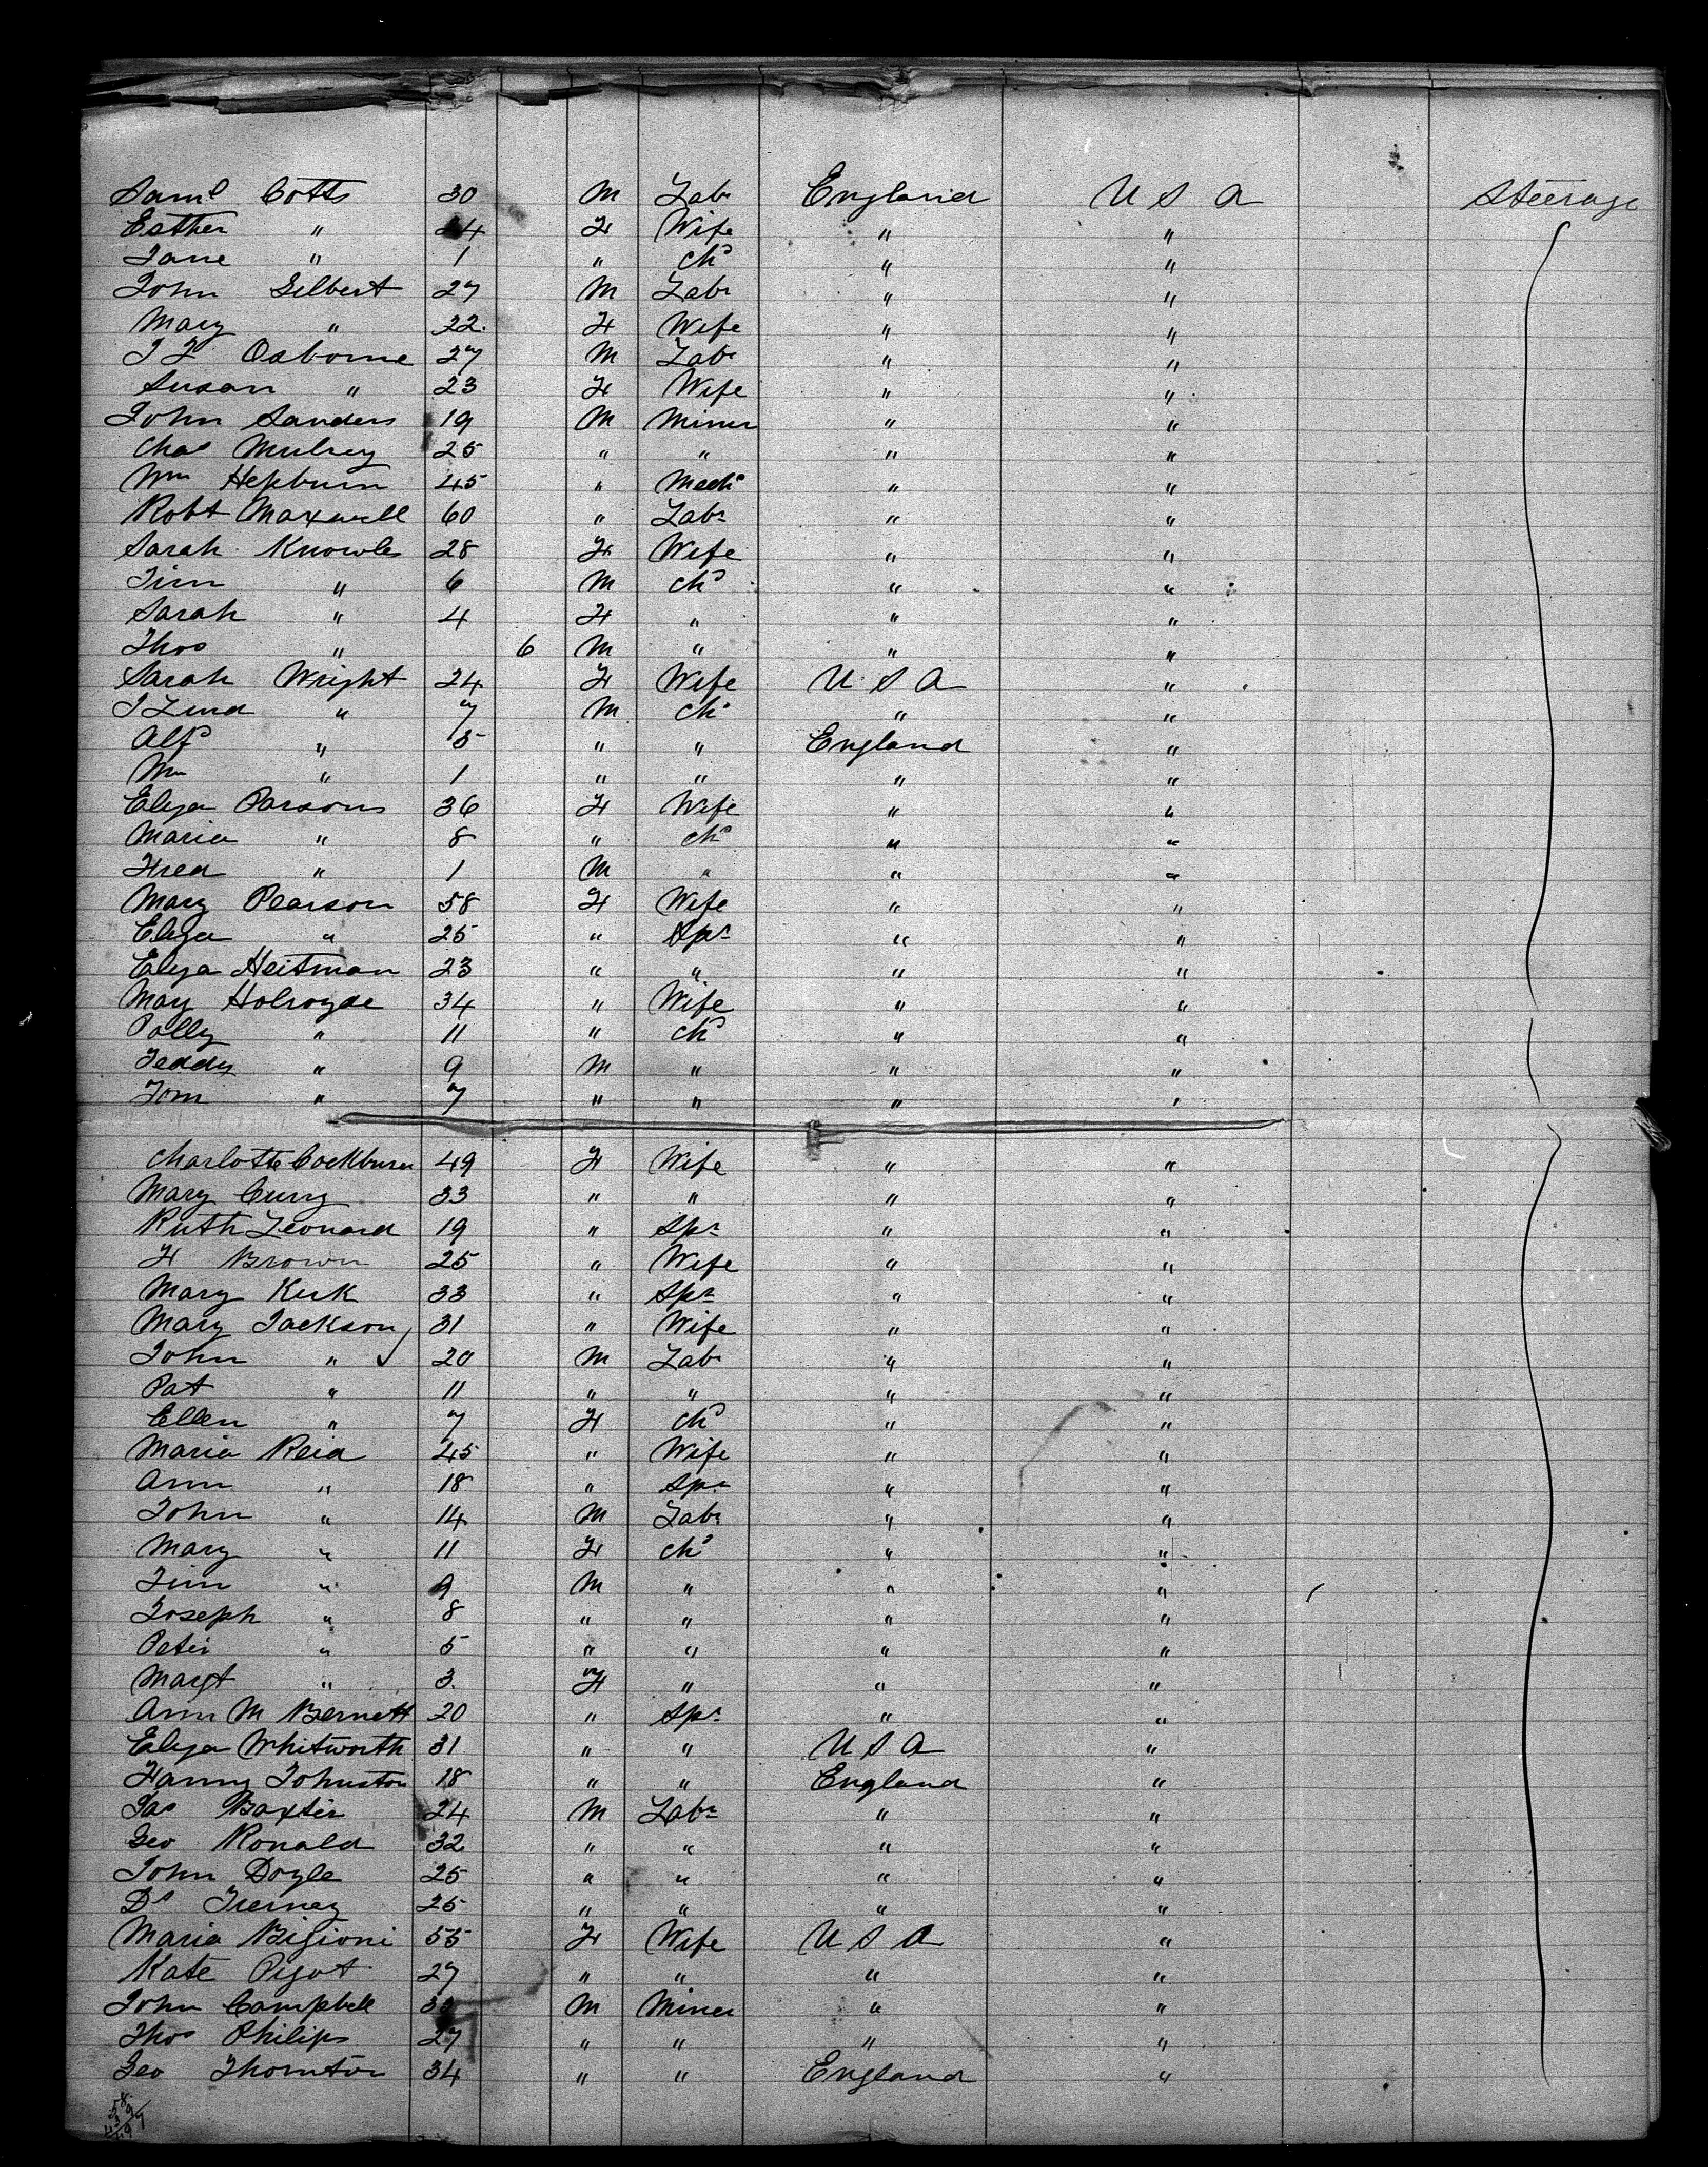 Saml Cotts 30 M Labr England U S A Steerage
Esther " 24 F Wife " "
Jane " 1 " Chd " "
John Gilbert 27 M Labr " "
Mary " 22 F Wife " "
J L Osborne 27 M Labr " "
Susan " 23 F Wife " "
John Sanders 19 M Miner " "
Chas Mulrey 25 " " " "
Wm Hepburn 45 " Mechc " "
Robt Maxwell 60 " Labr " "
Sarah Knowles 28 F Wife " "
Jim " 6 M Chd " "
Sarah " 4 F " " "
Thos " 6 M " " "
Sarah Wright 24 F Wife U S A "
" 7 M Chd " "
Alfd " 5 " " England "
Wm " 1 " " " "
Eliza Parsons 36 F Wife " "
Maria " 8 " Chd " "
Fred " 1 M " " "
Mary Pearson 58 F Wife " "
Eliza " 25 " Spr " "
Eliza Heitman 23 " " " "
Mary Holroyde 34 " Wife " "
Polly " 11 " Chd " "
Teddy " 9 M " " "
Tom " 7 " " " "
Charlotte Cockburn 49 F Wife " "
Mary Curry 33 " " " "
Ruth Leonard 19 " Spr " "
F Brown 25 " Wife " "
Mary Kirk 33 " Spr " "
Mary Jackson 31 " Wife " "
John " 20 M Labr " "
Pat " 11 " " " "
Ellen " 7 F Chd " "
Maria Reid 45 " Wife " "
Ann " 18 " Spr " "
John " 14 M Labr " "
Mary " 11 F Chd " "
Jim " 9 M " " "
Joseph " 8 " " " "
Peter " 5 " " " "
Margt " 3 F " " "
Ann M Bernett 20 " Spr " "
Eliza Whitworth 31 " " U S A "
Fanny Johnston 18 " " England "
Jas Baxter 24 M Labr " "
Geo Ronald 32 " " " "
John Doyle 25 " " " "
Ds Tierney 25 " " " "
Maria Bigioni 55 F Wife U S A "
Kate Pigot 27 " " " "
John Campbell M Miner " "
Thos Philips 27 " " " "
Geo Thornton 34 " " England "